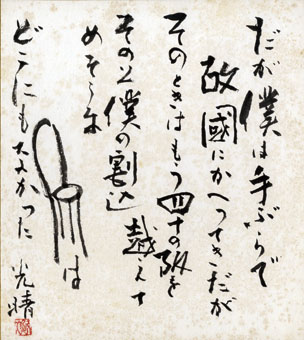 だが僕は手ぶらで
故國にかへつてきたが
そのときはもう四十の坂を
越えて
その上僕の割込
めそうな
は
どこにもなかった
光晴